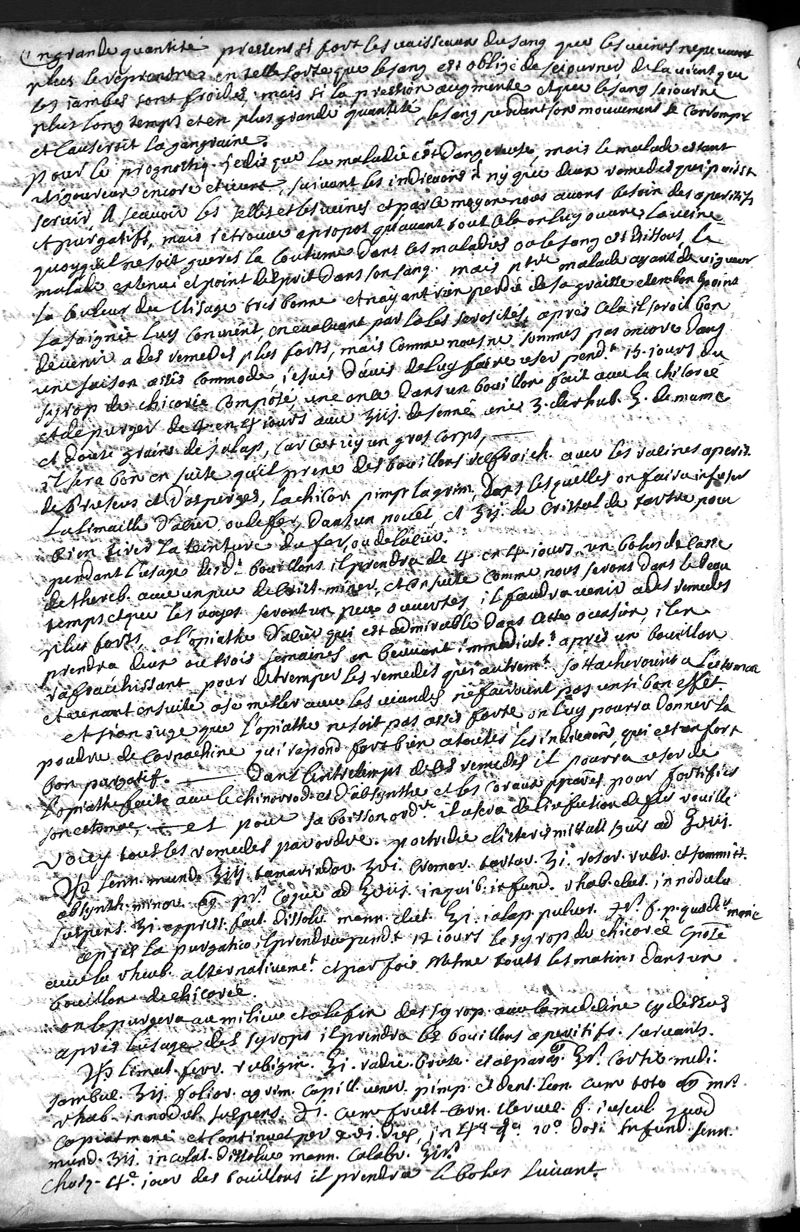 En grande quantité pressent si fort les vaisseaux du sang que les veines ne peuvent
plus le reprendre, en telle sorte que le sang est obligé de sejourner, de la vient que
les jambes sont froides, mais si la pression augmente et que le sang sejourne
plus long temps et en plus grande quantité, le sang perdant son mouvement se corrompt
et causeroit la gangraine.
Pour le prognostiq. je dis que la maladie est dangereuse, mais le malade estant
vigoureux encore et jeune, suivant les indica͠ons il n'y a que deux remedes qui puisse
servir a sçavoir les selles et les urines et par ce moyen nous avons besoin des aperitifs
et purgatifs, mais je trouve a propos qu'avant tout cela on luy ouvre la veine
quoyqu'il ne soit guere la coutume dans les maladies ou le sang est dissous, le
malade extenué et point d'esprit dans son sang. mais n͠re malade ayant de vigueur
la couleur du visage tres bonne et n'ayant rien perdu de sa graisse et en bon point
la saignée luy convient, en evacuant par la les serosités, apres cela il seroit bon
de venir a des remedes plus forts, mais comme nous ne sommes pas encore dans
une saison assés commode, je suis d'avis de luy faire user pend.t 15 jours du
syrop de chicorée composé, une once dans un bouillon fait avec la chicorée
et de purger de 4 en 4 jours avec ʒiij de senné une ʒ. de rhub. ℥. de mane
et douze grains de jalap, car c'est icy un gros corps,
il sera bon en suite qu'il prene des bouillons refraich. avec les racines aperit.
de bruscus et d'asperges, la chicor. pimp. l'agrim. dans lesquelles on faira infuser
la limaille d'acier ou de fer, dans un nouet et ʒij. de cristal de tartre pour
bien tirer la teinture du fer, ou de l'acier.
pendant l'usage desd.s bouillons il prendra de 4 en 4 jours un bolus de casse
de thereb. avec un peu de crist. miner, et ensuite comme nous serons dans le beau
temps et que les voyes seront un peu ouvertes, il faudra venir a des remedes
plus forts, a l'opiathe d'acier qui est admirable dans cette occasion, il en
prendra deux ou trois semaines en beuvant immediate.t apres un bouillon
rafraichissant pour detremper les remedes qui autrem.t s'attacheroient a l'estomac
et venant ensuite a se mesler avec les viandes ne fairoient pas un si bon effet.
et si on juge que l'opiathe ne soit pas assés forte on luy pourra donner la
poudre de cornachine qui repond fort bien a toutes les indica͠ons, qui est un fort
bon purgatif. Dans l'entretemps de ces remedes il pourra user de
l'opiathe faite avec le chinorrod. et d'absynthe et les coraux preparés pour fortifier
son estomac, et pour sa boisson ord.re il usera de l'infusion de fer rouillé.
Voicy tous les remedes par ordre. postridie clisteris mittatt.
℞ senn. munda ʒiij tamarindor. ʒvi. cremor. tartar. ʒi. rosar. rubr. et sommit.
absynth. minor. an͠ pr. coque ad ℥vi. in quib. infund. rhab. elect. in nodulo
suspens. ʒi. express. fact. dissolve mann. elect. ℥i. jalap pulver. f. p. quæ detur mane
apres la purgation il prendra pend.t 12 jours le syrop de chicorée c͠posé
avec la rhub. alternativeme.t et par fois mesme touts les matins dans un
bouillon de chicorée.
on le purgera au milieu et a la fin des syrop. avec la medecine cy dessus
apres l'usage des syrops il prendra les bouillons aperitifs suivants.
℞ limat. ferr. rubigin. ℥i. radic. brusc. et aspara͠g. ℥ß. cortic. medi.
sambuc. ʒij. folior. agrim. capill. vener. pimp. et dent. leon. cum toto an͠ m.
rhab. in nodul. suspens. ʒi. cum frust. carn. vervec. f. juscul. quod
capiat mane et continuat per dies, in 10.a dosi infund. senn.
mund. ʒij. in colat. dissolve mann. calabr. ℥i.
chasq. 4.e jour des bouillons il prendra le bolus suivant.